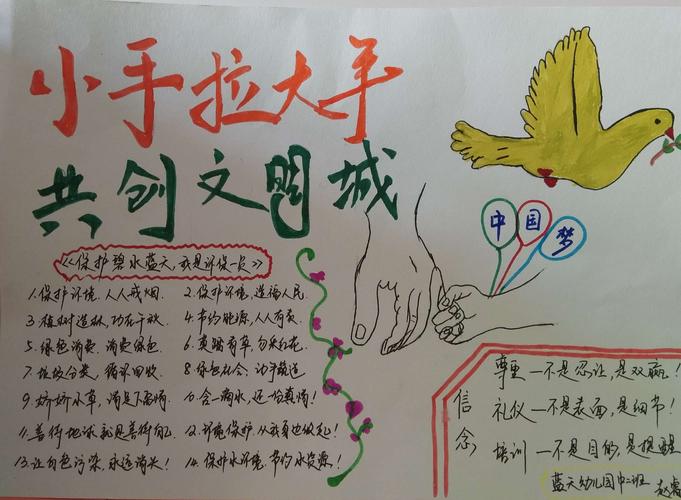 小手拉大手
共创文明城
《保护碧水蓝天,我是环保一员》
1.保护环境.人人戒烟.
2.保护环境,造福人民.
3.植树造林,功在千秋.
4.节约能源,人人有责.
5.绿色消费.消费绿色.
6.莫踏青草,勿采红花.
7.垃圾分类,循环回收.
8.绿色社会,动手
9.娇娇水草,请足下留情.
10.含一滴水,还一份真情!
11.善待地球就是善待自己.
12.环境保护.从我身边做起!
13.让白色污染,永远消失!
14.保护水环境.节约水资源!
中国梦
信念
尊重一不是忍让,是双赢!
礼仪一不是表面,是细节!
培训一不是目的,是提醒
蓝天幼儿园中二班 赵